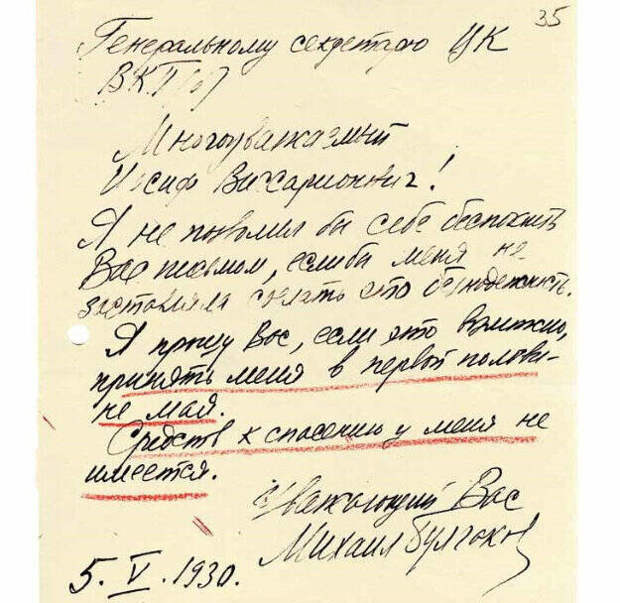 35
Генеральному секретарю ЦК
ВКП(б)
Многоуважаемый
Иосиф Виссарионович!
Я не позволил бы себе беспокоить
Вас письмом, если бы меня не
заставляла сделать это безнадежность.
Я прошу Вас, если это возможно,
принять меня в первой полови-
не мая.
Средств к спасению у меня не
имеется.
Уважающий Вас
Михаил Булгаков
5.V.1930.